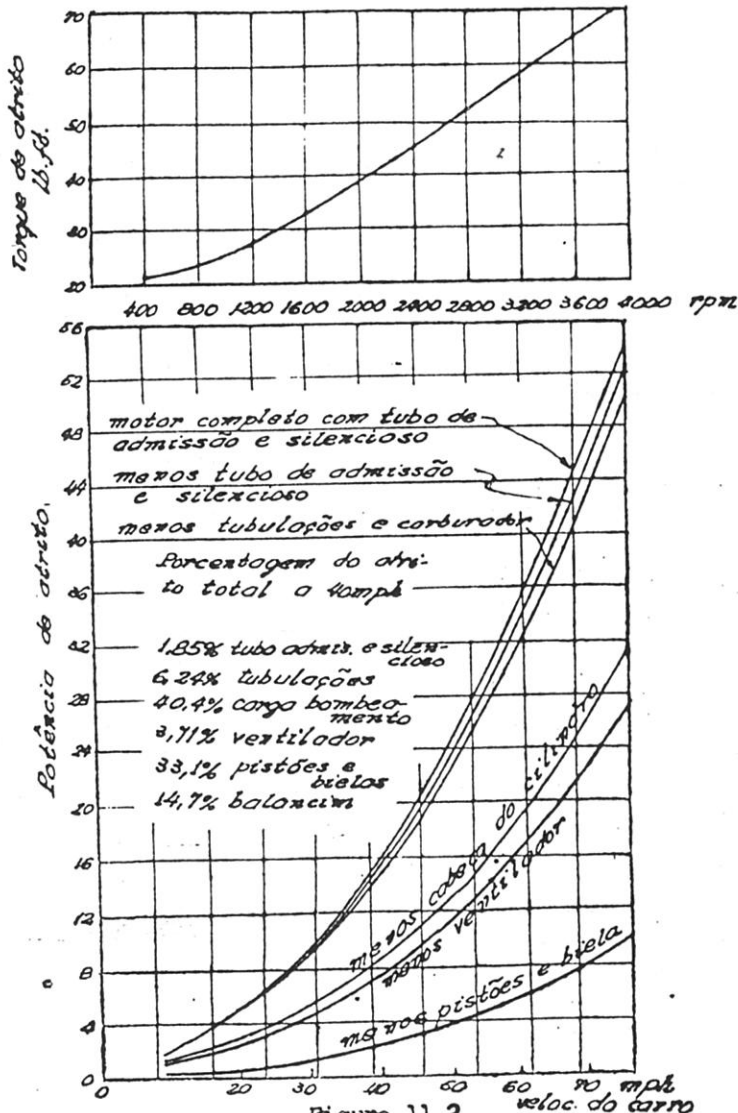 70
60
50
40
30
20
Torque de atrito
lb.ft.
400 800 1200 1600 2000 2400 2800 3200 3600 4000 rpm
56
52
48
44
40
36
32
28
24
20
16
12
8
4
0
Potência de atrito.
motor completo com tubo de
admissão e silencioso
menos tubo de admissão
e silencioso
menos tubulações e carburador
Porcentagem do atri-
to total a 40mph
1,85% tubo admis. e silen-
cioso
6,24% tubulações
40,4% carga bombea-
mento
3,71% ventilador
33,1% pistões e
bielas
14,7% balancim
menos cabeça do cilindro
menos ventilador
menos pistões e biela
0 20 30 40 50 60 70 mph
veloc. do carro
Figura 11.2